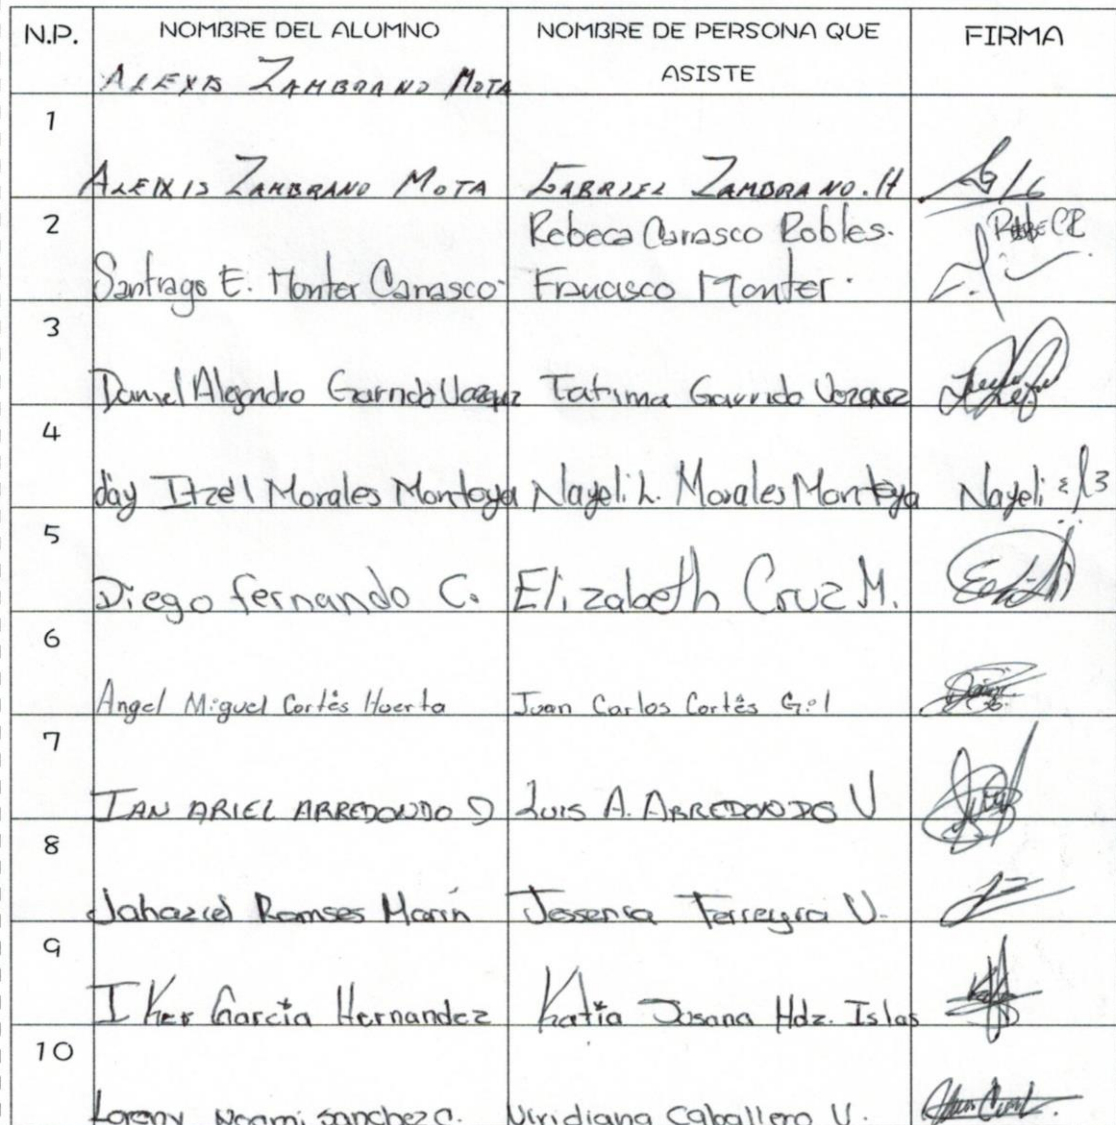 N.P. NOMBRE DEL ALUMNO NOMBRE DE PERSONA QUE ASISTE FIRMA
ALEXIS ZAMBRANO MOTA
1
ALEXIS ZAMBRANO MOTA GABRIEL ZAMBRANO.H
2 Rebeca Carrasco Robles.
Santiago E. Monter Carrasco Francisco Monter.
3
Daniel Alejandro Garrido Vazquez Fatima Garrido Vazquez
4
day Itzel Morales Montoya Nayeli L. Morales Montoya Nayeli
5
Diego fernando C. Elizabeth Cruz M.
6
Angel Miguel Cortês Huerta Juan Carlos Cortês Gil
7
IAN ARIEL ARREDONDO D LUIS A. ARREDONDO V
8
Jahaziel Ramses Marín Jessenia Ferreyra V.
9
IKer Garcia Hernandez Katia Susana Hdz. Islas
10
Loreny Noami Sanchez C. Viridiana Caballero V.